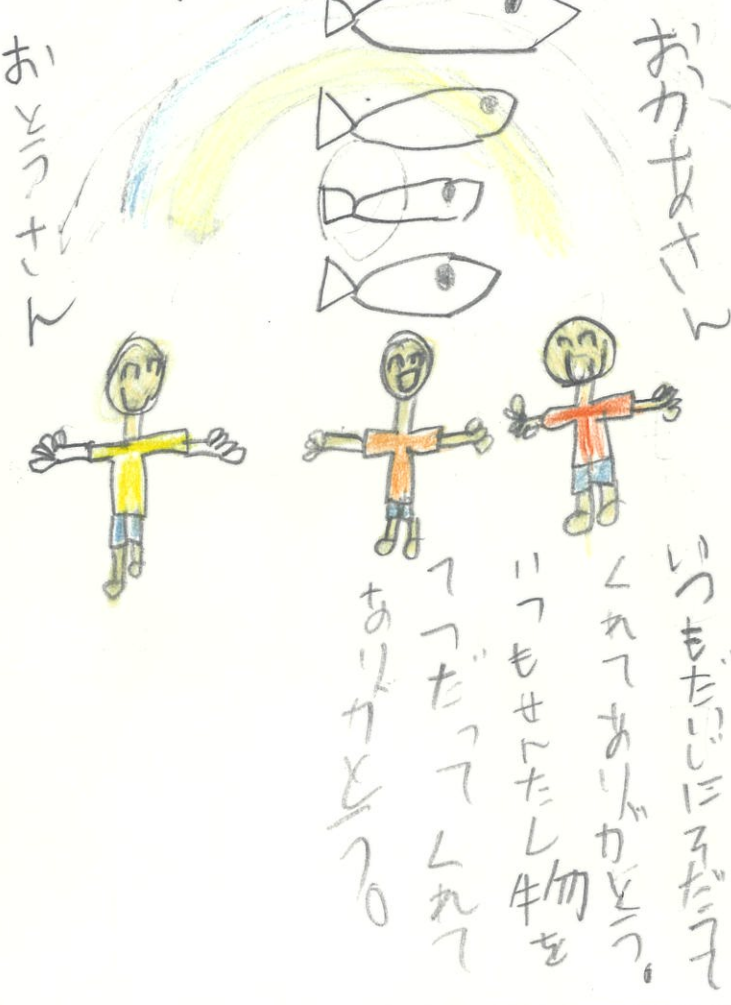 おかあさん
おとうさん
いつもだいじにそだって
くれてありがとう。
いつもせんたし物を
てつだってくれて
ありがとう。